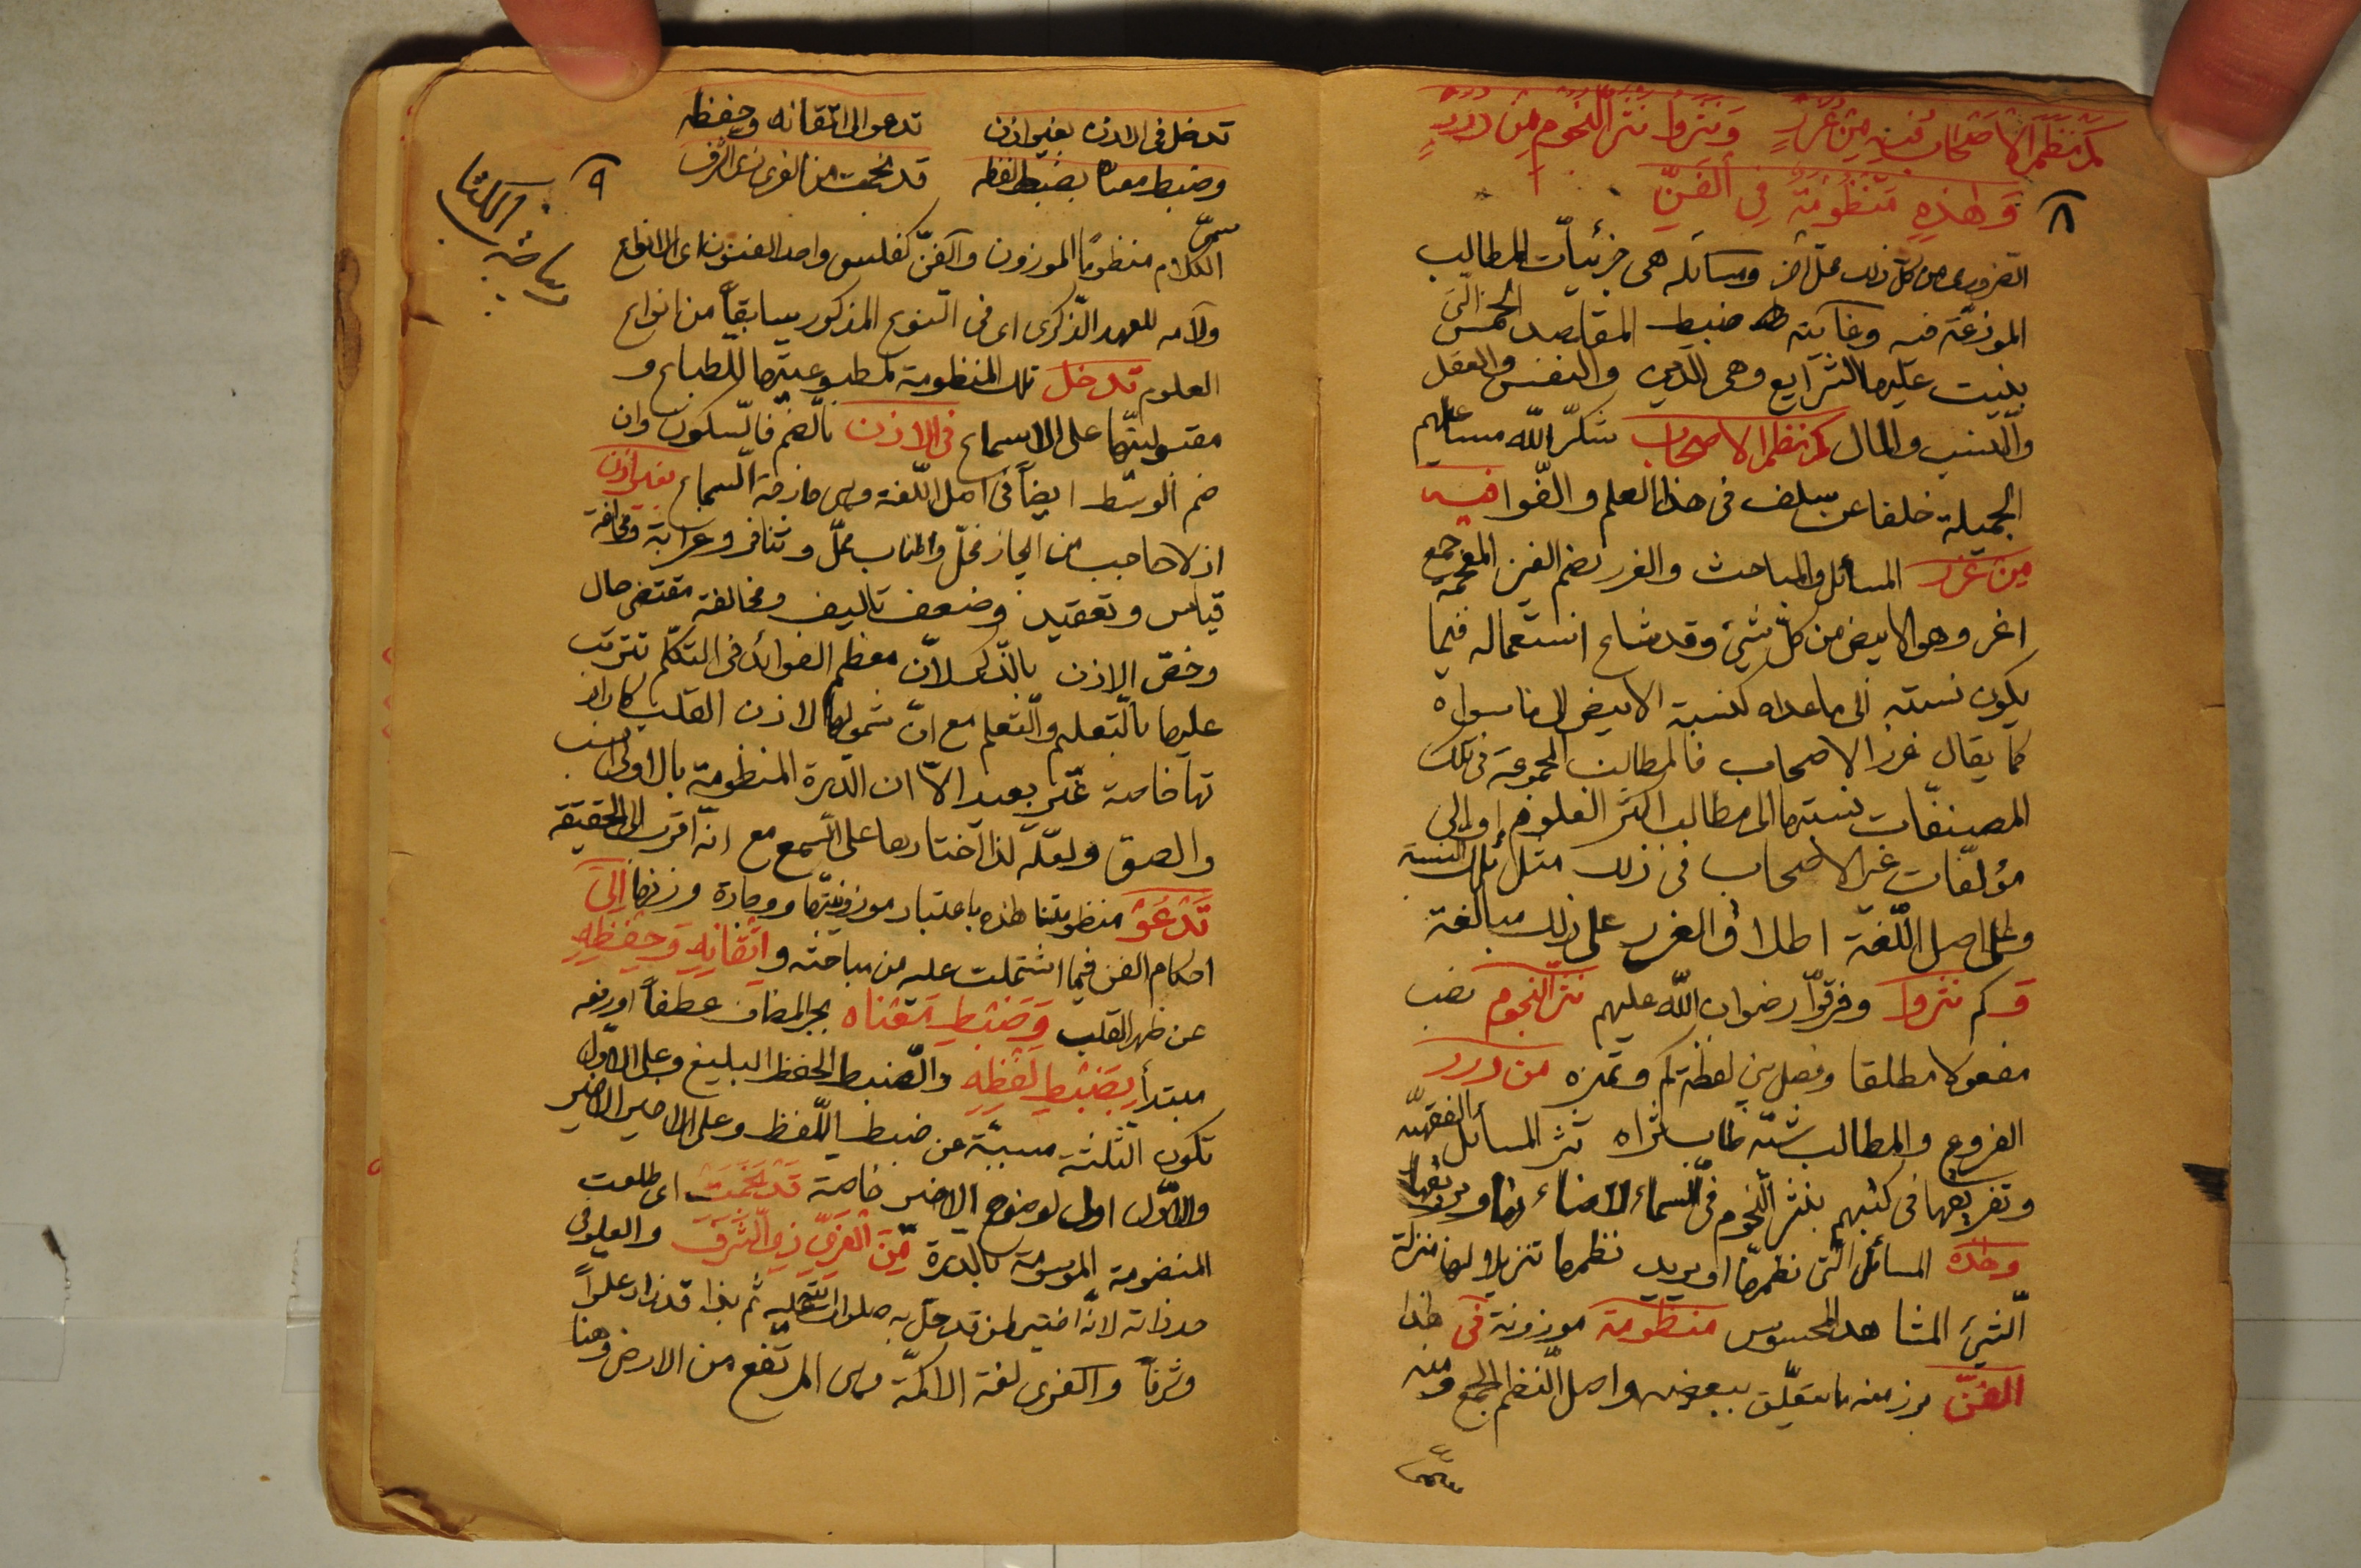 كم نظم الاصحاب فيه من غرر ونثروا نثر النجوم من درر
وهذه منظومة في الفن
٨
الضرورى من كل ذلك محل اخر ومسائله هى جزئيات المطالب
الموزعة فيه وغايته ضبط المقاصد الخمس التى
بنيت عليها الشرايع وهى الدين والنفس والعقل
والنسب والمال كم نظم الاصحاب شكر الله مساعيهم
الجميلة خلفا عن سلف فى هذا العلم والفوا فيه
من غرر المسائل والمباحث والغرر بضم الغين المعجمة جمع
اغر وهو الابيض من كل شىء وقد شاع استعماله فيما
يكون نسبته الى ما عداه كنسبة الابيض الى ما سواه
كما يقال غرر الاصحاب فالمطالب المجموعة فى تلك
المصنفات نسبتها الى مطالب اكثر العلوم او الى
مؤلفات غير الاصحاب فى ذلك مثل تلك النسبة
وعلى اصل اللغة اطلاق الغرر على ذلك مبالغة
وكم نثروا وفرقوا رضوان الله عليهم نثر النجوم نصب
مفعولا مطلقا وفصل بين لفظة كم وتميزه من درر
الفروع والمطالب شبه طاب ثراه نثر المسائل الفقهية
وتفريقها فى كتبهم بنثر النجوم فى السماء لاضاءتها ورونقها
وهذه المسائل التى نظمها او يريد نظمها تنزيلا لها منزلة
الشىء المشاهد المحسوس منظومة موزونة فى هذا
الفن برز منه ما يتعلق ببعض واصل النظم الجمع ومنه
سمى
تدخل فى الاذن بغير اذن تدعو الى اتقانه وحفظه
وضبط معناه بضبط لفظه قد نجمت من الغرى ذى الشرف
٩
الكلام منظوما الموزون والفن كفلس واحد الفنون اى الانواع
ولامه للعهد الذكرى اى فى النوع المذكور سابقا من انواع
العلوم تدخل تلك المنظومة لمطبوعيتها للطباع و
مقبوليتها على الاسماع فى الاذن بالضم فالسكون وان
ضم الوسط ايضا فى اصل اللغة وهى جارحة السماع بغير اذن
اذ لا حاجب من ايجاز مخل واطناب ممل وتنافر وغرابة ومخالفة
قياس وتعقيد وضعف تاليف ومخالفة مقتضى حال
وخص الاذن بالذكر لان معظم الفوائد فى التكلم تترتب
عليها بالتعليم والتعلم مع ان شمولها لاذن القلب كاراد
تها خاصة غير بعيد الا ان الدرة المنظومة بالاولى انسب
والصق ولعله لذا اختارها على السمع مع انه اقرب الى الحقيقة
تدعو منظومتنا هذه باعتبار موزونيتها وجادة وزنها الى
احكام الفن فيما اشتملت عليه من مباحثه و اتقانه وحفظه
عن ظهر القلب وضبط معناه بجر المضاف عطفا او رفعه
مبتدأ بضبط لفظه والضبط الحفظ البليغ وعلى الاول
تكون الثلثة مسببة عن ضبط اللفظ وعلى الاخير الاخير
والاول اولى لوضوح الاخير خاصة قد نجمت اى طلعت
المنظومة الموسومة بالدرة من الغرى ذى الشرف والعلو فى
حد ذاته لانه اختير لمن قد حل به صلوات الله عليه ثم بذا قد زاد علوا
وشرفا والغرى لغة الاكمة وهى المرتفع من الارض وهنا